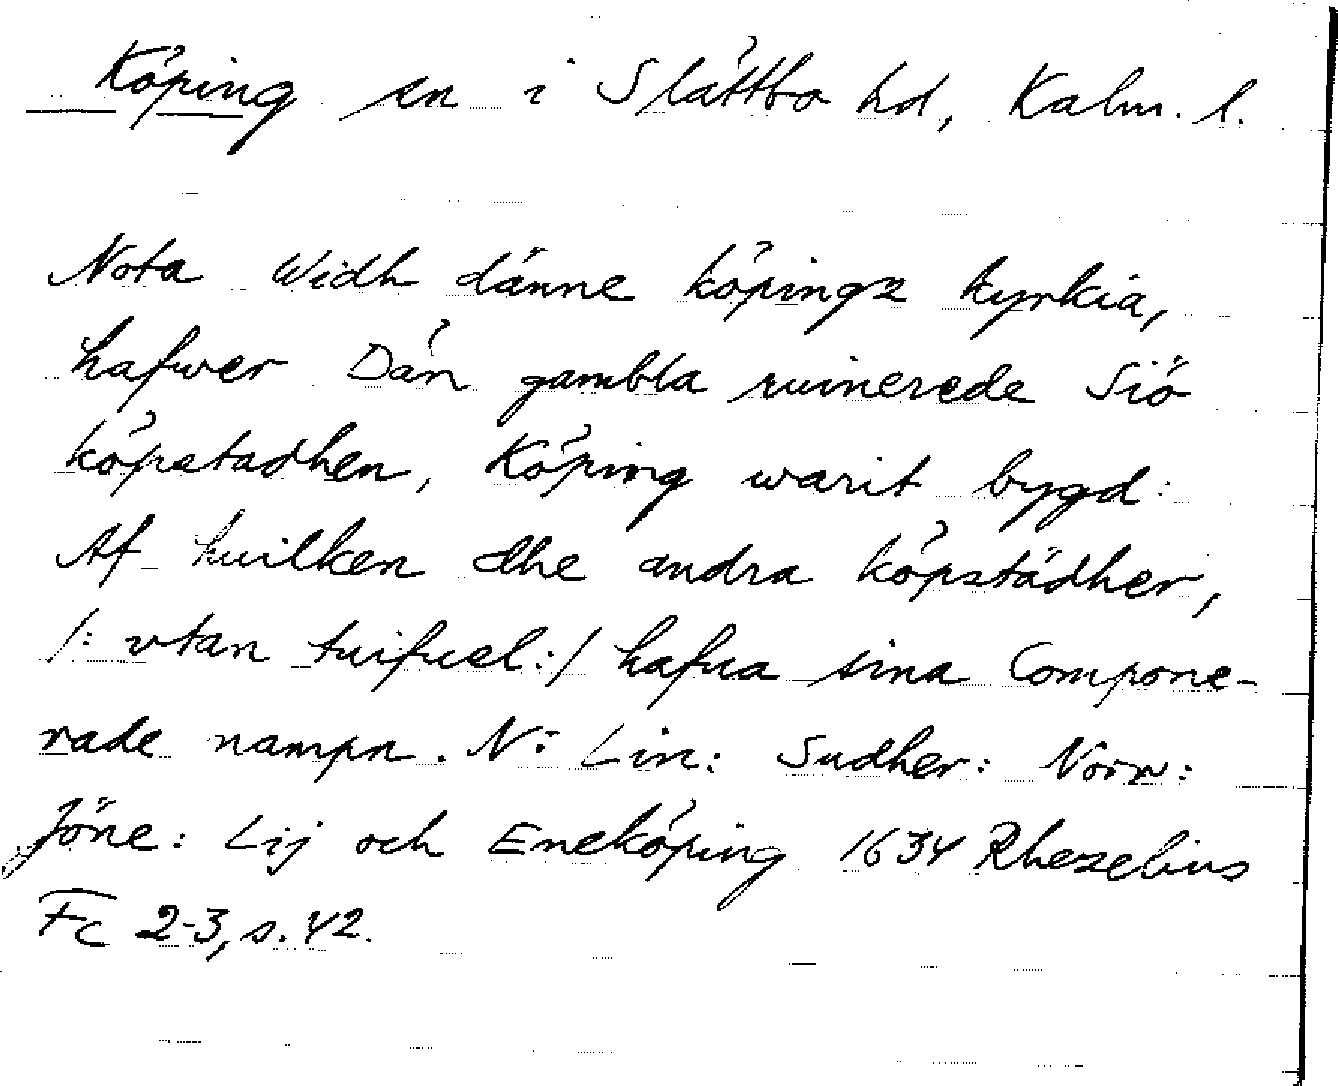 Köping sn i Slättbo hd, Kalm. l.
Nota Widh dänne köpingz kyrkia,
hafwer Dän gambla ruinerede Siö
köpstadhen, Köping warit bygd:
Af huilken dhe andra köpstädher,
/: vtan tuifuel:/ hafua sina Compone-
rade nampn. N: Lin: Sudher: Norr:
Jöne: Lij och Eneköping 1634 Rhezelius
Fc 2-3, s. 42.